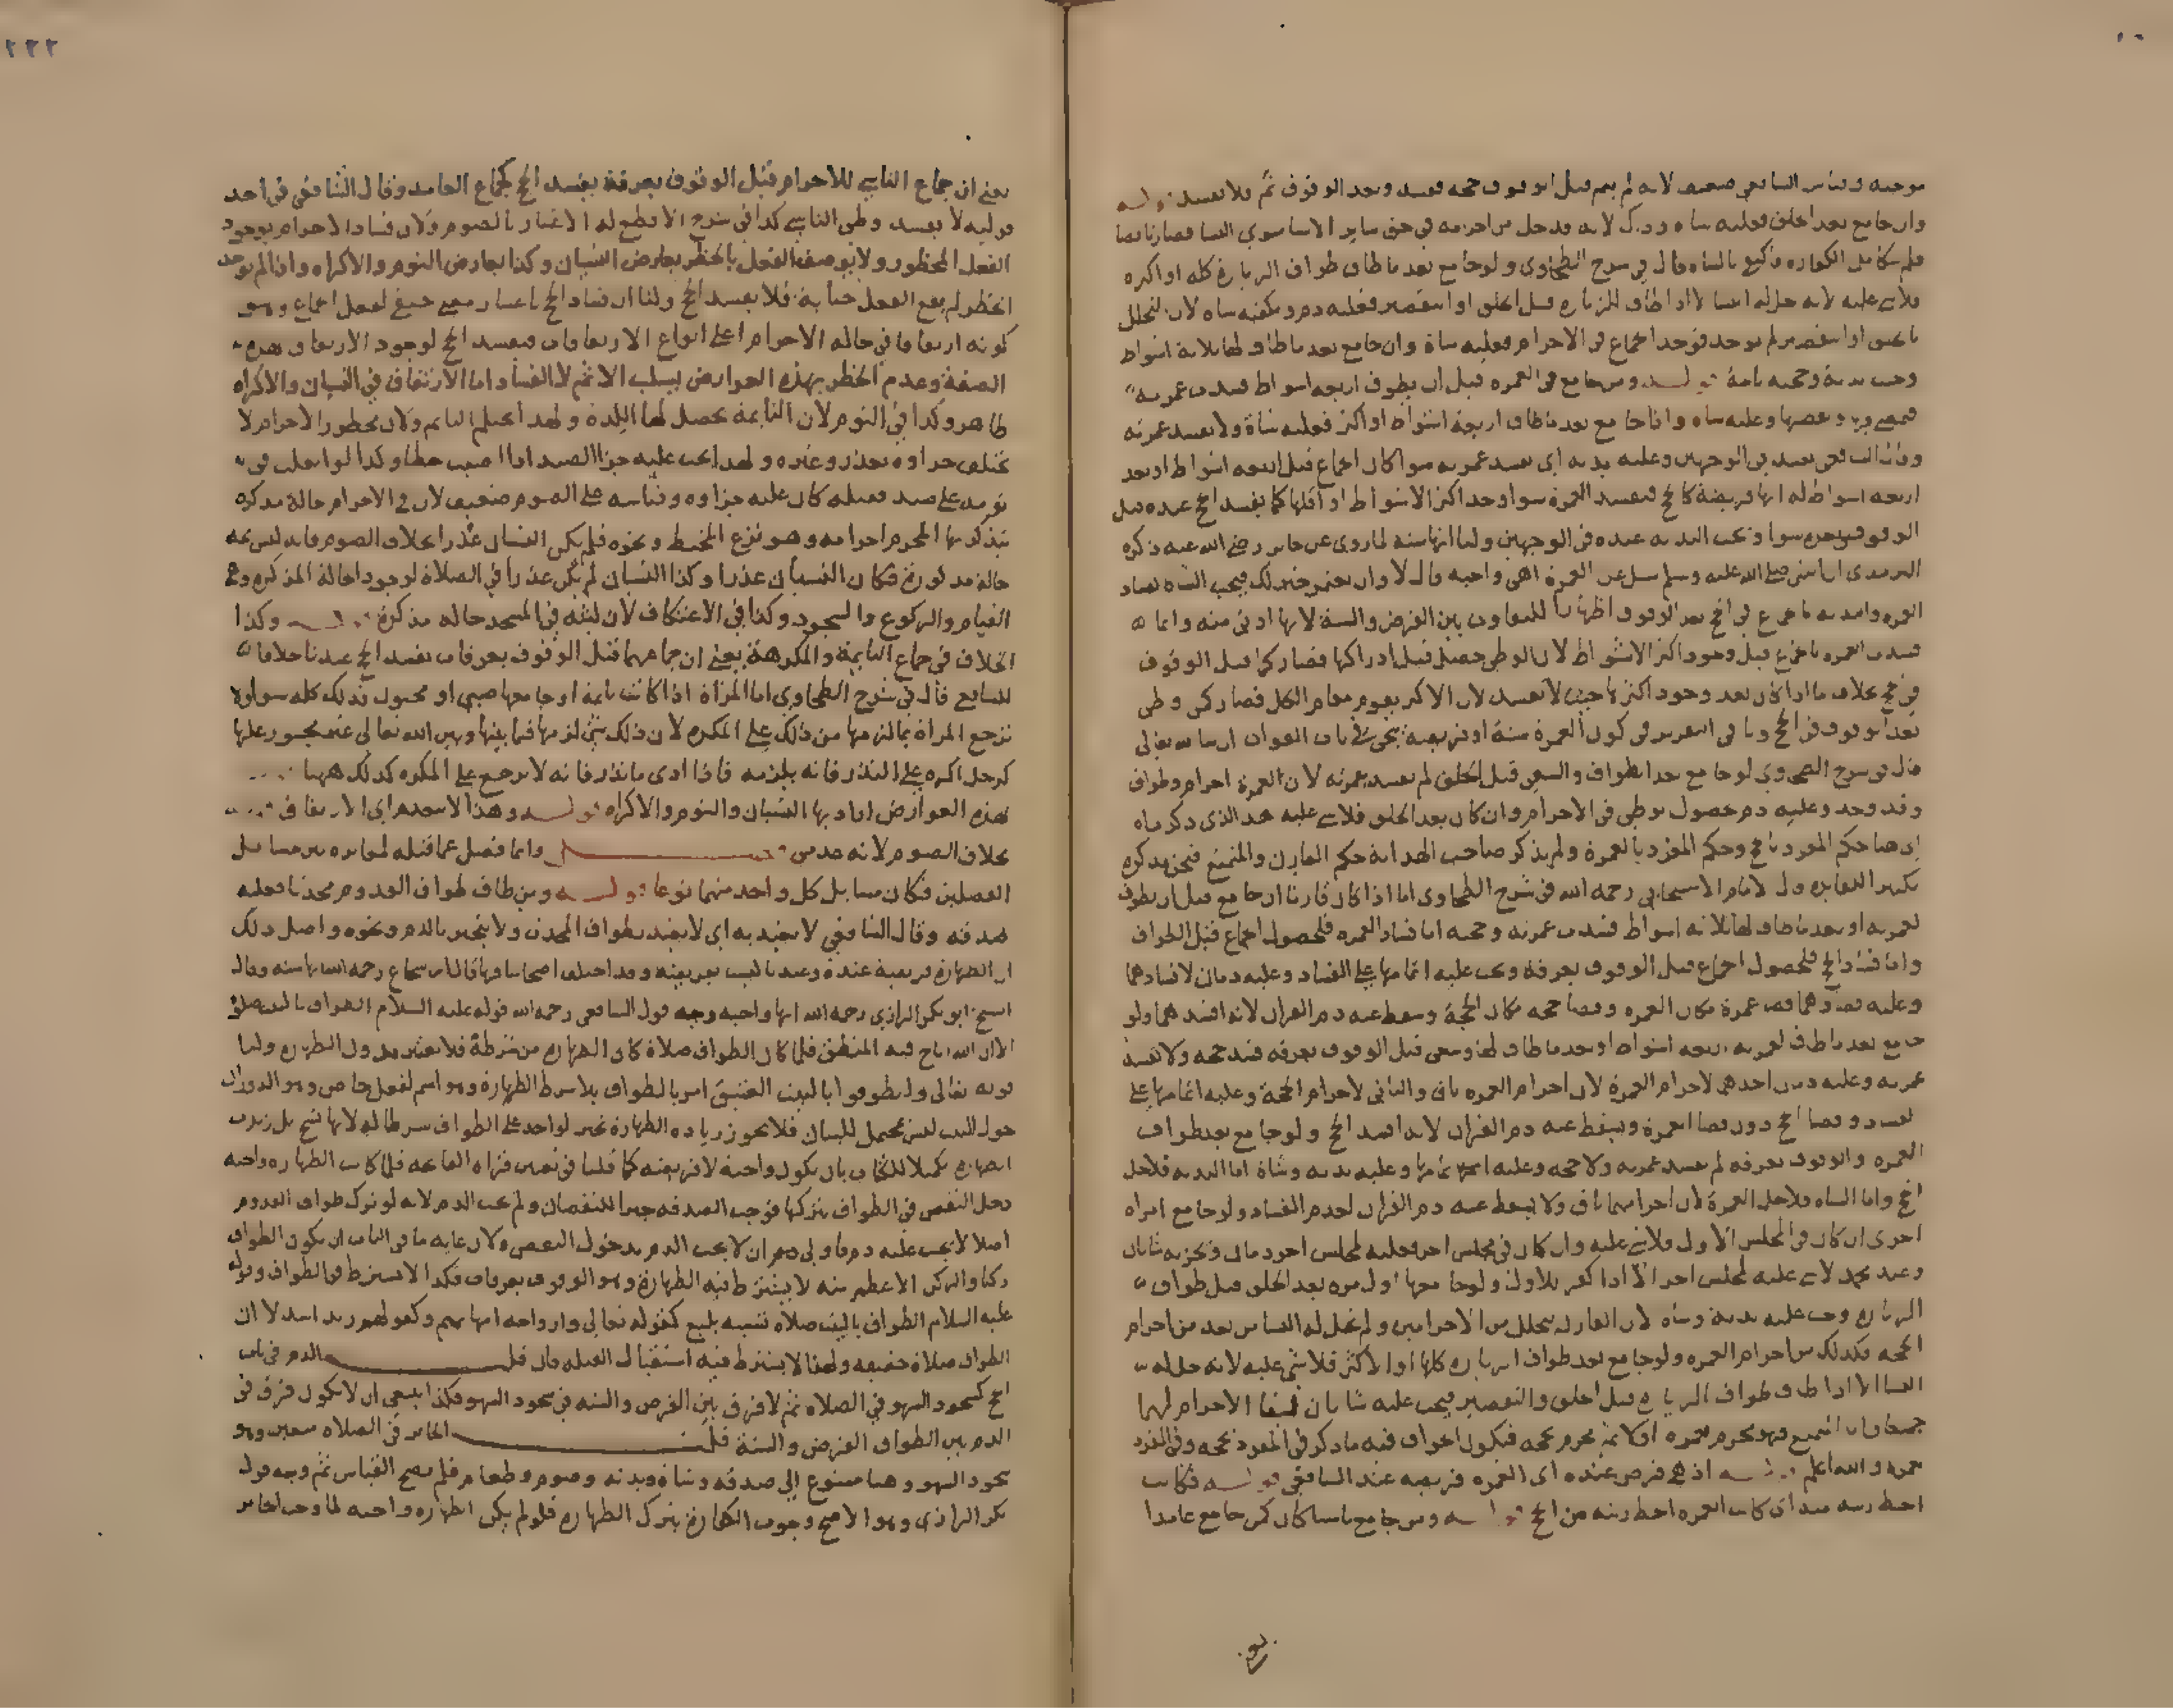 موجبه وقياس الشافعي ضعيف لانه لم يتم قبل الوقوف حجه فيفسد وبعد الوقوف تم فلا يفسد قوله
وان جامع بعد الحلق فعليه شاة وذلك لانه قد حل من احرامه في حق ساير الاشيا سوي النسا فصار ناقصا
فلم تتكامل الكفاره فاكتفي بالشاه قال في شرح الطحاوي ولو جامع بعد ما طاف طواف الزيارة كله او اكثره
فلا شي عليه لانه حل له النسا الا اذا طاف للزيارة قبل الحلق او التقصير فعليه دم ويكفيه شاه لان التحلل
بالحلق او التقصير لم يوجد فوجد الجماع في الاحرام فعليه شاة وان جامع بعد ما طاف لها ثلاثة اشواط
وجب بدنة وحجته تامة قوله ومن جامع في العمره قبل ان يطوف اربعة اشواط فسدت عمرته
فيمضي فيها ويقضيها وعليه شاه واذا جامع بعد ما طاف اربعة اشواط او اكثر فعليه شاة ولا تفسد عمرته
وقال الشافعي يفسد في الوجهين وعليه بدنه اي تفسد عمرته سوا كان الجماع قبل اربعه اشواط او بعد
اربعه اشواط له انها فريضة كالحج فيفسد العمرة سوا وجد اكثر الاشواط او اقلها كما يفسد الحج عنده قبل
الوقوف وبعده سوا وتجب البدنه عنده في الوجهين ولنا انها سنة لما روي عن جابر رضي الله عنه ذكره
الترمذي ان النبي صلي الله عليه وسلم سئل عن العمرة اهي واجبه قال لا وان تعتمر خير لك فيجب الشاه لفساد
العمره والبدنه بالجماع في الحج بعد الوقوف اظهارا للتفاوت بين الفرض والسنة لانها ادني منه وانما
فسدت العمره بالجماع قبل وجود اكثر الاشواط لان الوطي حصل قبل ادراكها فصار كما قبل الوقوف
في الحج بخلاف ما اذا كان بعد وجود اكثرها حيث لا تفسد لان الاكثر يقوم مقام الكل فصار كمن وطي
بعد الوقوف في الحج وباقي التقرير في كون العمرة سنة او فريضة يجي في باب الفوات ان شا الله تعالي
قال في شرح الطحاوي لو جامع بعد الطواف والسعي قبل الحلق لم تفسد عمرته لان العمرة احرام وطواف
وقد وجد وعليه دم لحصول الوطي في الاحرام وان كان بعد الحلق فلا شي عليه هذا الذي ذكرناه
اي هنا حكم المفرد بالحج وحكم المفرد بالعمرة ولم يذكر صاحب الهداية حكم القارن والمتمتع فنحن نذكره
تكثيرا للفايده قال الامام الاسبيجابي رحمه الله في شرح الطحاوي اما اذا كان قارنا ان جامع قبل ان يطوف
لعمرته او بعد ما طاف لها ثلاثه اشواط فسدت عمرته وحجته اما فساد العمره فلحصول الجماع قبل الطواف
واما فساد الحج فلحصول الجماع قبل الوقوف بعرفة ويجب عليه اتمامها علي الفساد وعليه دمان لافسادهما
وعليه قضاؤهما قضا عمرة مكان العمره وقضا حجه مكان الحجة ويسقط عنه دم القران لانه افسدهما ولو
جامع بعد ما طاف لعمرته اربعه اشواط او بعد ما طاف لها وسعي قبل الوقوف بعرفه فسد حجه ولا تفسد
عمرته وعليه دمان احدهما لاحرام العمرة لان احرام العمره باق والثاني لاحرام الحجة وعليه اتمامها علي
الفساد وقضا الحج دون قضا العمرة ويسقط عنه دم القران لانه افسد الحج ولو جامع بعد طواف
العمره والوقوف بعرفه لم تفسد عمرته ولا حجه وعليه اتمامها وعليه بدنه وشاة اما البدنه فلاجل
الحج واما الشاه فلاجل العمرة لان احرامهما باق ولا يسقط عنه دم القران لعدم الفساد ولو جامع امراه
اخري ان كان في المجلس الاول فلا شي عليه وان كان في مجلس اخر فعليه لمجلس اخر دمان ويجزيه شاتان
وعند محمد لا شي عليه لمجلس اخر الا اذا كفر للاول ولو جامعها اول مره بعد الحلق قبل طواف
الزيارة وجب عليه بدنة وشاه لان القارن يتحلل من الاحرامين ولم يحل له النسا من بعد من احرام
الحجه فكذلك من احرام العمره ولو جامع بعد طواف الزيارة كلها او الاكثر فلا شي عليه لانه حل له
النسا الا اذا طاف طواف الزيارة قبل الحلق والتقصير فيجب عليه شاتان لبقا الاحرام لهما
جميعا واما المتمتع فهو محرم بعمره اولا ثم يحرم بحجه فيكون الجواب فيه ما ذكر في المفرد بحجه وفي المفرد
بعمره والله اعلم قوله اذ هي فرض عنده اي العمره فريضه عند الشافعي قوله فكانت
احط رتبه منه اي كانت العمره احط رتبه من الحج قوله ومن جامع ناسيا كان كمن جامع عامدا
٢٢٢
يعني ان جماع الناسي للاحرام قبل الوقوف بعرفة يفسد الحج كجماع العامد وقال الشافعي في احد
قوليه لا يفسد وطي الناسي كذا في شرح الاقطع له الاعتبار بالصوم ولان فساد الاحرام بوجود
الفعل المحظور ولا يوصف الفعل بالحظر بعارض النسيان وكذا بعارض النوم والاكراه واذا لم يوجد
الحظر لم يقع الفعل جناية فلا يفسد الحج ولنا ان فساد الحج باعتبار معني حقيقي لفعل الجماع وهو
كونه ارتفاقا في حالة الاحرام اعلي انواع الارتفاقات فيفسد الحج لوجود الارتفاق بهذه
الصفة وعدم الحظر بهذه العوارض يسلب الاثم لا الفساد اما الارتفاق في النسيان والاكراه
ظاهر وكذا في النوم لان النايمة يحصل لها اللذة ولهذا يحتلم النايم ولان محظور الاحرام لا
يختلف جزاوه بعذر وغيره ولهذا يجب عليه جزا الصيد اذا اصيب خطا وكذا لو انقلب في
نومه علي صيد فقتله كان عليه جزاوه وقياسه علي الصوم ضعيف لان في الاحرام حالة مذكره
يتذكر بها المحرم احرامه وهو نزع المخيط ونحوه فلم يكن النسيان عذرا بخلاف الصوم فانه ليس ثمه
حالة مذكورة فكان النسيان عذرا وكذا النسيان لم يكن عذرا في الصلاة لوجود الحالة المذكره وهي
القيام والركوع والسجود وكذا في الاعتكاف لان لبثه في المسجد حاله مذكرة قوله وكذا
الخلاف في جماع النايمة والمكرهة يعني ان جماعهما قبل الوقوف بعرفات يفسد الحج عندنا خلافا
للشافعي قال في شرح الطحاوي اما المرأة اذا كانت نايمة او جامعها صبي او مجنون فذلك كله سوا ولا
ترجع المراة بما لزمها من ذلك علي المكره لان ذلك شي لزمها فيما بينها وبين الله تعالي غير مجبور عليها
كرجل اكره علي النذر فانه يلزمه فاذا ادي ما نذر فانه لا يرجع علي المكره كذلك ههنا
بهذه العوارض اراد بها النسيان والنوم والاكراه قوله وهذا لا يعدمه اي الارتفاق
بخلاف الصوم لانه قد مر فصل وانما فصل عما قبله لمغايره بين مسايل
الفصلين فكان مسايل كل واحد منهما نوعا قوله ومن طاف طواف القدوم محدثا فعليه
صدقه وقال الشافعي لا يعتد به اي لا يعتد بطواف المحدث ولا ينجبر بالدم ونحوه واصل ذلك
ان الطهارة فريضة عنده وعندنا ليست بفريضه وقد اختلف اصحابنا فيها قال ابن شجاع رحمه الله انها سنه وقال
الشيخ ابو بكر الرازي رحمه الله انها واجبه وجه قول الشافعي رحمه الله قوله عليه السلام الطواف بالبيت صلاة
الا ان الله اباح فيه المنطق فلما كان الطواف صلاة كان الطهارة من شرطة فلا يعتبر بدون الطهارة ولنا
قوله تعالي وليطوفوا بالبيت العتيق امر بالطواف بلا شرط الطهارة وهو اسم لفعل خاص وهو الدوران
حول البيت ليس بمحتمل للبيان فلا يجوز زيادة الطهارة بخبر الواحد علي الطواف شرطا له لانها نسخ بل زيدت
الطهارة تكميلا للكتاب بان يكون واجبة لا فريضه كما قلنا في تعيين قراه الفاتحه فلما كانت الطهاره واجبه
دخل النقص في الطواف بتركها فوجب الصدقه جبرا للنقصان ولم يجب الدم لانه لو ترك طواف القدوم
اصلا لا يجب عليه دم فاولي دم ان لا يجب الدم بدخول النقص ولان غايه ما في الباب ان يكون الطواف
ركنا والركن الاعظم منه لا يشترط فيه الطهارة وهو الوقوف بعرفات فكذا لا يشترط في الطواف وقوله
عليه السلام الطواف بالبيت صلاة تشبيه بليغ كقوله تعالي وازواجه امهاتهم وكقولهم زيد اسد لا ان
الطواف صلاة حقيقه ولهذا لا يشترط فيه استقبال القبله فان قلت الدم في باب
الحج كسجود السهو في الصلاة ثم لا فرق بين الفرض والسنه في سجود السهو فكذا ينبغي ان لا يكون فرق في
الدم بين الطواف الفرض والسنة قلت الجابر في الصلاه معين وهو
سجود السهو وهنا متنوع الي صدقه وشاة وبدنه وصوم وطعام فلم يصح القياس ثم وجه قول
بكر الرازي وهو الاصح وجوب الكفارة بترك الطهارة فلو لم يكن الطهاره واجبه لما وجب الجابر